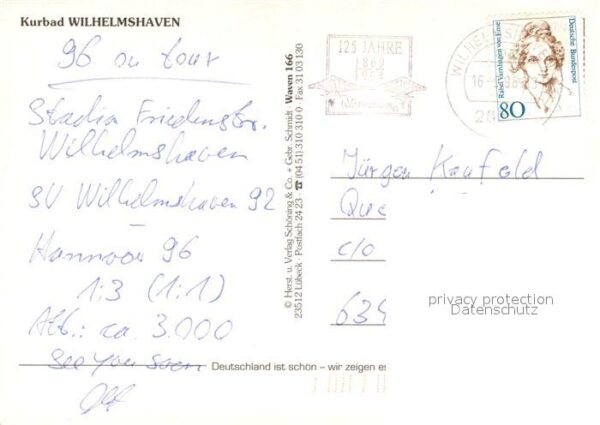 Kurbad WILHELMSHAVEN
96 on tour
Stadion Friedenstr.
Wilhelmshaven
SV Wilhelmshaven 92
-
Hannover 96
1:3 (1:1)
Att.: ca. 3.000
see you soon
© Herst. u. Verlag Schöning & Co. + Gebr. Schmidt · Waven 166
23512 Lübeck · Postfach 24 23 · ☎ (04 51) 310 310 0 · Fax 31 03 130
Deutschland ist schön – wir zeigen es
125 JAHRE
1869
WILHELMSH
Rahel Varnhagen von Ense
Deutsche Bundespost
80
Jürgen Kaufold
Que
c/o
634
privacy protection
Datenschutz